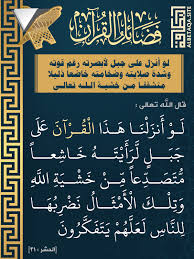 فضائل القرآن
ALBETAQA.SITE
لو أنزل على جبل لأبصرته رغم قوته
وشدة صلابته وضخامته خاضعا ذليلا
متشققا من خشية الله تعالى
قال الله تعالى :
لَوْ أَنْزَلْنَا هَذَا الْقُرْآنَ عَلَى
جَبَلٍ لَرَأَيْتَهُ خَاشِعاً
مُتَصَدِّعاً مِنْ خَشْيَةِ اللَّهِ
وَتِلْكَ الْأَمْثَالُ نَضْرِبُهَا
لِلنَّاسِ لَعَلَّهُمْ يَتَفَكَّرُونَ
[الحشر : ٢١]